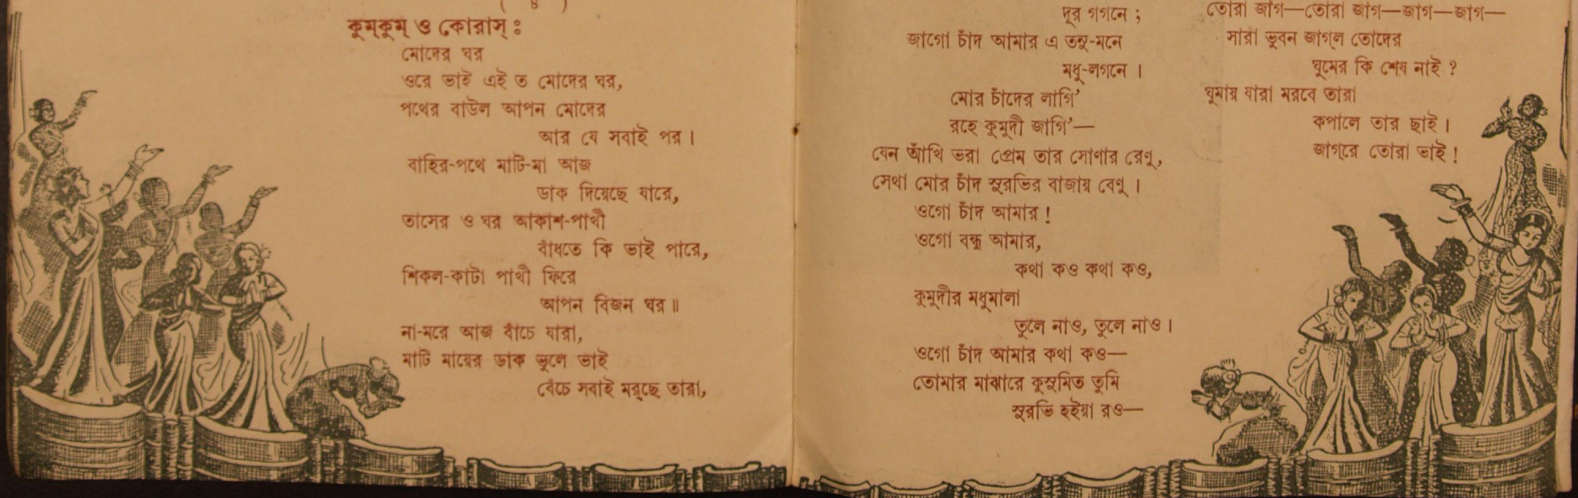 ( ৪ )
কুম্‌কুম্‌ ও কোরাস্‌ঃ
মোদের ঘর
ওরে ভাই এই ত মোদের ঘর,
পথের বাউল আপন মোদের
আর যে সবাই পর।
বাহির-পথে মাটি-মা আজ
ডাক দিয়েছে যারে,
তাসের ও ঘর আকাশ-পাখী
বাঁধতে কি ভাই পারে,
শিকল-কাটা পাখী ফিরে
আপন বিজন ঘর॥
না-মরে আজ বাঁচে যারা,
মাটি মায়ের ডাক ভুলে ভাই
বেঁচে সবাই মর্‌ছে তারা,
দূর গগনে ;
জাগো চাঁদ আমার এ তনু-মনে
মধু-লগনে।
মোর চাঁদের লাগি’
রহে কুমুদী জাগি’—
যেন আঁখি ভরা প্রেম তার সোণার রেণু,
সেথা মোর চাঁদ সুরভির বাজায় বেণু।
ওগো চাঁদ আমার!
ওগো বন্ধু আমার,
কথা কও কথা কও,
কুমুদীর মধুমালা
তুলে নাও, তুলে নাও।
ওগো চাঁদ আমার কথা কও—
তোমার মাঝারে কুসুমিত তুমি
সুরভি হইয়া রও—
তোরা জাগ—তোরা জাগ—জাগ—জাগ—
সারা ভুবন জাগ্‌ল তোদের
ঘুমের কি শেষ নাই ?
ঘুমায় যারা মরবে তারা
কপালে তার ছাই।
জাগ্‌রে তোরা ভাই!